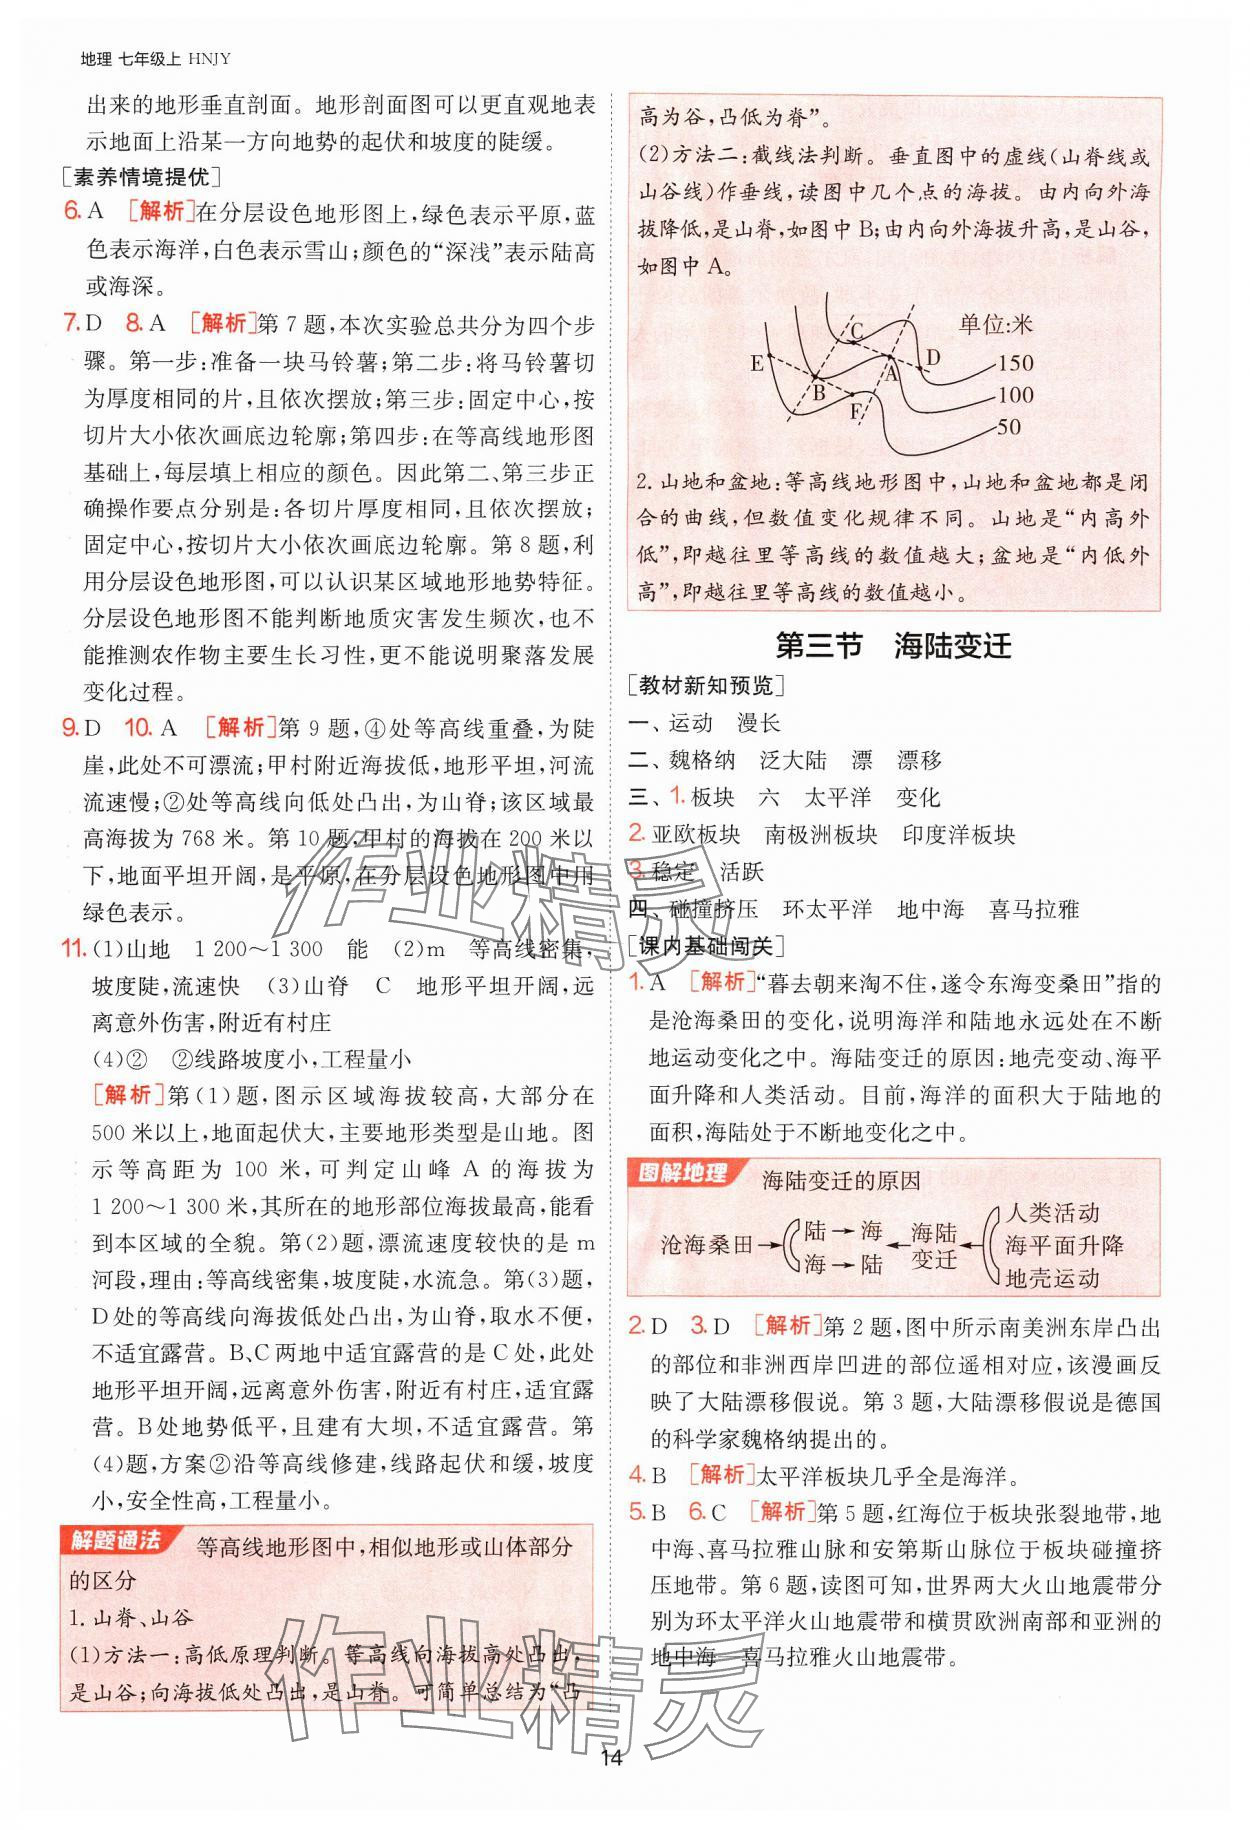 地理 七年级上 HNJY
出来的地形垂直剖面。地形剖面图可以更直观地表
示地面上沿某一方向地势的起伏和坡度的陡缓。
[素养情境提优]
6. A [解析]在分层设色地形图上,绿色表示平原,蓝
色表示海洋,白色表示雪山;颜色的“深浅”表示陆高
或海深。
7. D 8. A [解析]第7题,本次实验总共分为四个步
骤。第一步:准备一块马铃薯;第二步:将马铃薯切
为厚度相同的片,且依次摆放;第三步:固定中心,按
切片大小依次画底边轮廓;第四步:在等高线地形图
基础上,每层填上相应的颜色。因此第二、第三步正
确操作要点分别是:各切片厚度相同,且依次摆放;
固定中心,按切片大小依次画底边轮廓。第8题,利
用分层设色地形图,可以认识某区域地形地势特征。
分层设色地形图不能判断地质灾害发生频次,也不
能推测农作物主要生长习性,更不能说明聚落发展
变化过程。
9. D 10. A [解析]第9题,④处等高线重叠,为陡
崖,此处不可漂流;甲村附近海拔低,地形平坦,河流
流速慢;②处等高线向低处凸出,为山脊;该区域最
高海拔为768米。第10题,甲村的海拔在200米以
下,地面平坦开阔,是平原,在分层设色地形图中用
绿色表示。
11. (1)山地 1 200～1 300 能 (2)m 等高线密集,
坡度陡,流速快 (3)山脊 C 地形平坦开阔,远
离意外伤害,附近有村庄
(4)② ②线路坡度小,工程量小
[解析]第(1)题,图示区域海拔较高,大部分在
500米以上,地面起伏大,主要地形类型是山地。图
示等高距为100米,可判定山峰A的海拔为
1 200～1 300米,其所在的地形部位海拔最高,能看
到本区域的全貌。第(2)题,漂流速度较快的是m
河段,理由:等高线密集,坡度陡,水流急。第(3)题,
D处的等高线向海拔低处凸出,为山脊,取水不便,
不适宜露营。B、C两地中适宜露营的是C处,此处
地形平坦开阔,远离意外伤害,附近有村庄,适宜露
营。B处地势低平,且建有大坝,不适宜露营。第
(4)题,方案②沿等高线修建,线路起伏和缓,坡度
小,安全性高,工程量小。
解题通法 等高线地形图中,相似地形或山体部分
的区分
1. 山脊、山谷
(1)方法一:高低原理判断。等高线向海拔高处凸出,
是山谷;向海拔低处凸出,是山脊。可简单总结为“凸
高为谷,凸低为脊”。
(2)方法二:截线法判断。垂直图中的虚线(山脊线或
山谷线)作垂线,读图中几个点的海拔。由内向外海
拔降低,是山脊,如图中B;由内向外海拔升高,是山谷,
如图中A。
单位:米
C
D
E
A
B
F
150
100
50
2. 山地和盆地:等高线地形图中,山地和盆地都是闭
合的曲线,但数值变化规律不同。山地是“内高外
低”,即越往里等高线的数值越大;盆地是“内低外
高”,即越往里等高线的数值越小。
第三节 海陆变迁
[教材新知预览]
一、运动 漫长
二、魏格纳 泛大陆 漂 漂移
三、1. 板块 六 太平洋 变化
2. 亚欧板块 南极洲板块 印度洋板块
3. 稳定 活跃
四、碰撞挤压 环太平洋 地中海 喜马拉雅
[课内基础闯关]
1. A [解析]“暮去朝来淘不住,遂令东海变桑田”指的
是沧海桑田的变化,说明海洋和陆地永远处在不断
地运动变化之中。海陆变迁的原因:地壳变动、海平
面升降和人类活动。目前,海洋的面积大于陆地的
面积,海陆处于不断地变化之中。
图解地理 海陆变迁的原因
沧海桑田→
陆→海
海→陆
←海陆变迁←
人类活动
海平面升降
地壳运动
2. D 3. D [解析]第2题,图中所示南美洲东岸凸出
的部位和非洲西岸凹进的部位遥相对应,该漫画反
映了大陆漂移假说。第3题,大陆漂移假说是德国
的科学家魏格纳提出的。
4. B [解析]太平洋板块几乎全是海洋。
5. B 6. C [解析]第5题,红海位于板块张裂地带,地
中海、喜马拉雅山脉和安第斯山脉位于板块碰撞挤
压地带。第6题,读图可知,世界两大火山地震带分
别为环太平洋火山地震带和横贯欧洲南部和亚洲的
地中海—喜马拉雅火山地震带。
作业精灵
作业精灵
14